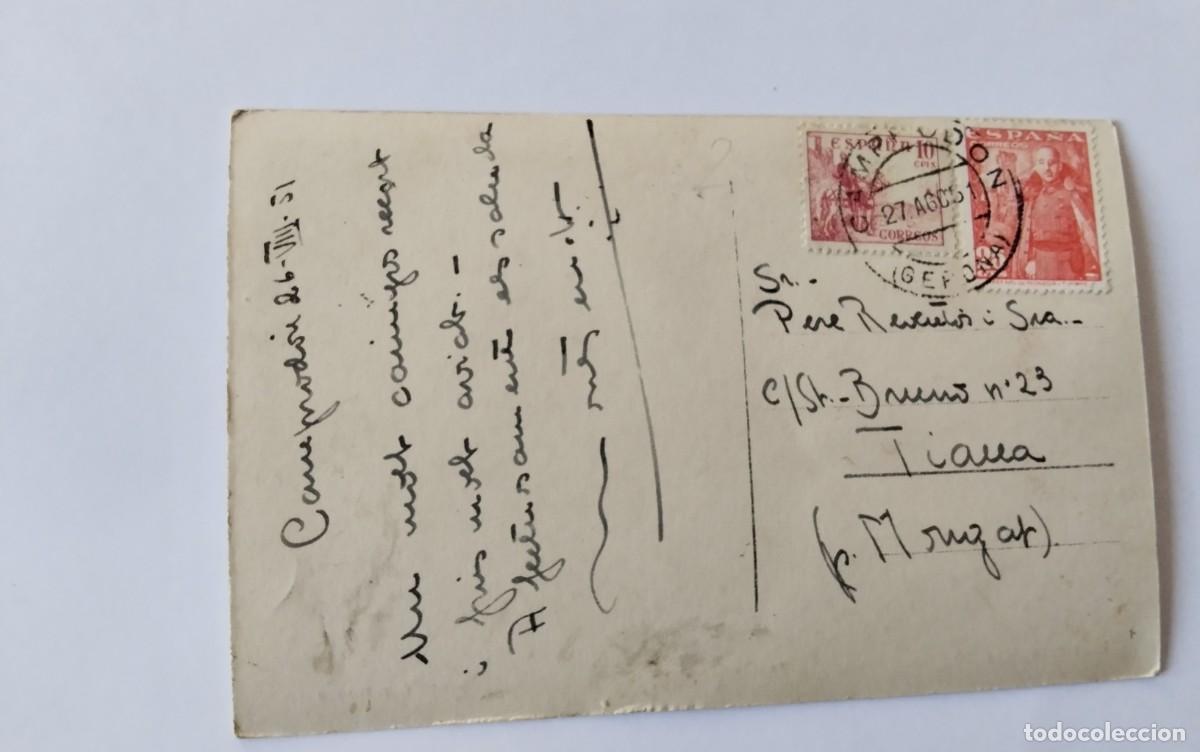 Camprodón 26-VIII-51
Un molt carinyós recort
i fins molt aviat.-
Afectuosament els saluda
ESPAÑA 10
CTS
CORREOS
ESPAÑA
CORREOS
CAMPRODON
27.AGO51
(GERONA)
Sr.-
Pere Reventós i Sra.-
C/St.- Bruno nº 23
Tiana
(p. Mongat).
todocoleccion